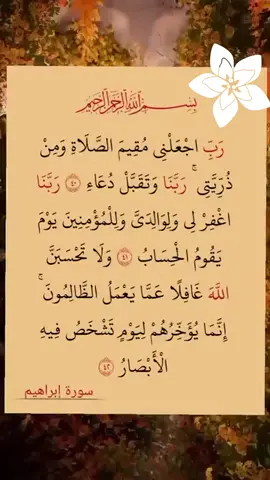 بِسْمِ اللَّهِ الرَّحْمَٰنِ الرَّحِيمِ
رَبِّ اجْعَلْنِي مُقِيمَ الصَّلَاةِ وَمِنْ
ذُرِّيَّتِي ۚ رَبَّنَا وَتَقَبَّلْ دُعَاءِ ٤٠ رَبَّنَا
اغْفِرْ لِي وَلِوَالِدَيَّ وَلِلْمُؤْمِنِينَ يَوْمَ
يَقُومُ الْحِسَابُ ٤١ وَلَا تَحْسَبَنَّ
اللَّهَ غَافِلًا عَمَّا يَعْمَلُ الظَّالِمُونَ ۚ
إِنَّمَا يُؤَخِّرُهُمْ لِيَوْمٍ تَشْخَصُ فِيهِ
الْأَبْصَارُ ٤٢
سورة إبراهيم